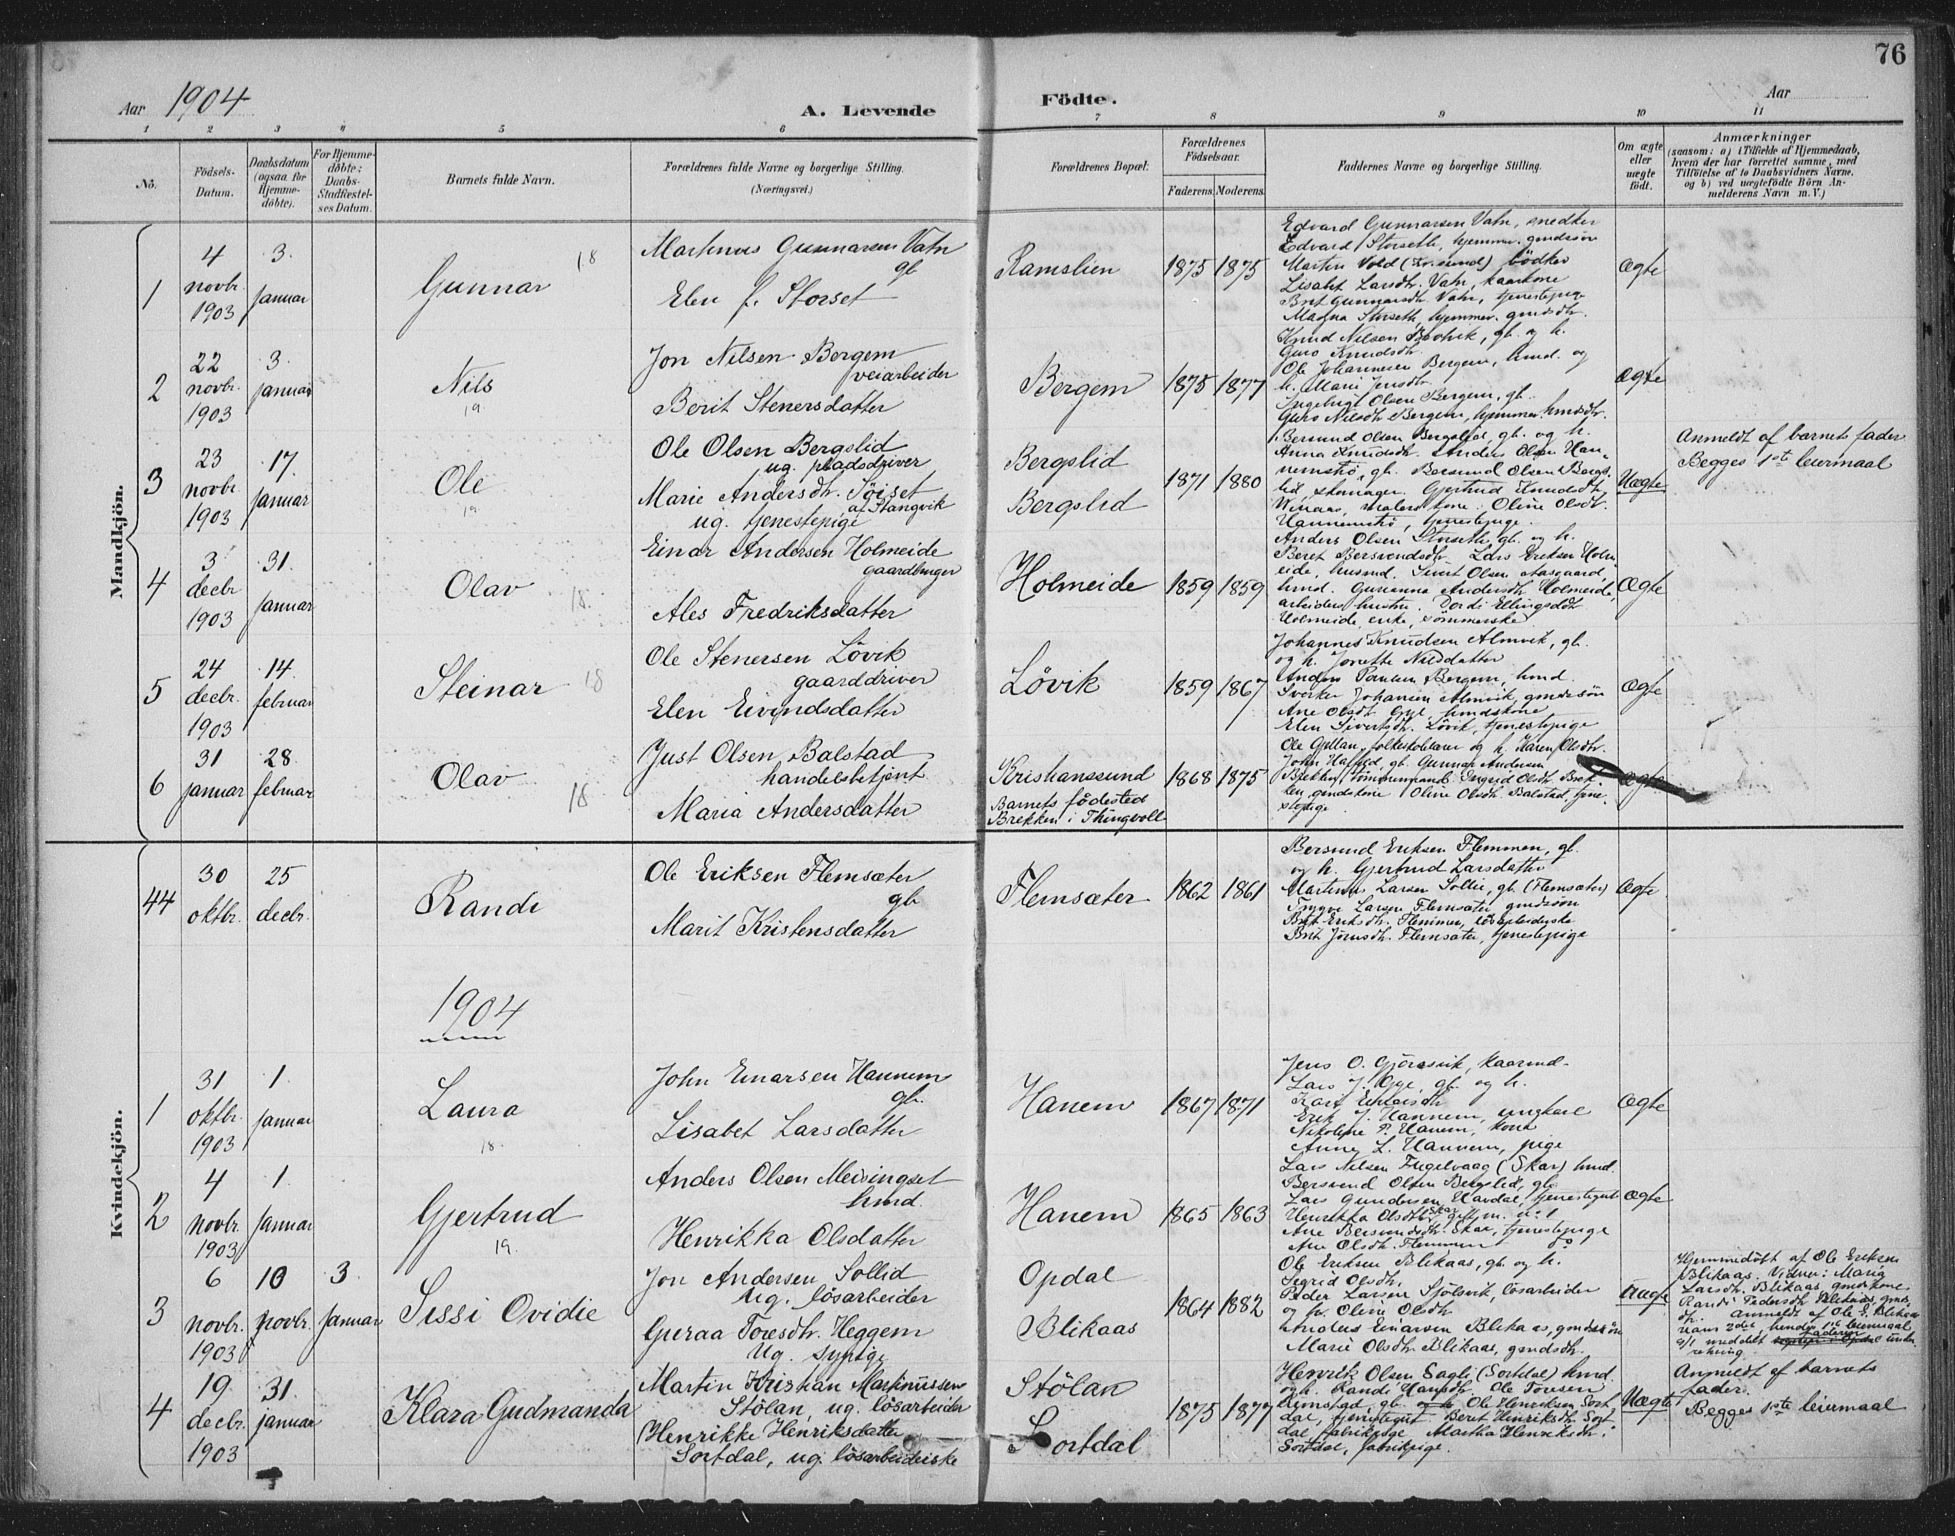 76
Aar 1904
A. Levende Födte.
Aar
1 2 3 4 5 6 7 8 9 10 11
No.
Födsels-Datum.
Daabsdatum (ogsaa for Hjemme-döbte).
For Hjemme-döbte: Daabs-Stadfæstel-ses Datum.
Barnets fulde Navn.
Forældrenes fulde Navne og borgerlige Stilling. (Næringsvei.)
Forældrenes Bopæl.
Forældrenes Födselsaar.
Faderens. Moderens.
Faddernes Navne og borgerlige Stilling.
Om ægte eller uægte födt.
Anmærkninger
(saasom: a) i Tilfælde af Hjemmedaab, hvem der har forrettet samme, med Tilföielse af to Daabsvidners Navne, og b) ved uægtefödte Börn An-melderens Navn m. V.)
Mandkjön.
1
4 novbr. 1903
3. januar
Gunnar 18
Martinus Gunnarsen Vatn gb.
Elen f. Storset
Ramslien
1875 1875
Edvard Gunnarsen Vatn, snedker
Edvard Storseth, hjemmev. gmdssön
Martin Vold (Krsund) bödker
Lisabet Larsdtr. Vatn, kaarkone
Brit Gunnarsdtr. Vatn, tjenestepige
Magna Storseth, hjemmev. gmdsdtr.
Ægte
2
22 novbr. 1903
3. januar
Nils
19.
Jon Nilsen Bergem
veiarbeider
Berit Stenersdatter
Bergem
1875 1877
Knud Nilsen gb. og h.
Guro Knudsdtr.
Ole Johannesen Bergem, hmd. og
h. Marie Jensdtr.
Ingebrigt Olsen Bergem, gb.
Guro Nilsdtr. Bergem, hjemmev. hmdsdtr.
Ægte
3
23 novbr. 1903
17. januar
Ole
19.
Ole Olsen Bergslid
ug. pladsdriver
Marie Andersdtr. Söiset
af Stangvik
ug. tjenestepige
Bergslid
Bergslid
1871 1880
Bersund Olsen Bergslid, gb. og h.
Anna Knudsdtr. Anders Olsen Han-
nemstrø, gb. Bersund Olsen Bergs-
lid, skomager. Gjertrud Knudsdtr.
Winaas, malers kone. Oline Olsdtr.
Hannemstrø, tjenestepige.
Uægte
Anmeldt af barnets fader
Begges 1ste leiermaal
4
3 decbr. 1903
31. januar
Olav 18.
Einar Andersen Holmeide
gaardbruger
Ales Fredriksdatter
Holmeide
1859 1859
Anders Olsen Storseth gb. og h.
Beret Bersvendsdtr. Lars Eriksen Holm-
eide, husmd. Sivert Olsen Aasgaard,
hmd. Gurianna Andersdtr. Holmeide,
arbeiders hustru. Dordi Ellingsdtr.
Holmeide, enke, sömmerske
Ægte
5
24 decbr. 1903
14. februar
Steinar 18
Ole Stenersen Lövik
gaarddriver
Elen Eivindsdatter
Lövik
1859 1867
Johannes Knudsen Almvik, gb.
og h. Jonette Nilsdatter
Anders Paulsen Bergem, hmd.
Sverke Johansen Almvik, gmdssön
Ane Olsdtr. Gyl, hmdskone
Elen Sivertsdtr. Lövik, tjenestepige
Ægte
6
31 januar
28. februar
Olav 18
Just Olsen Balstad
handelsbetjent
Maria Andersdatter
Kristianssund
Barnets födested
Brekken i Thingvoll
1868 1875
Ole Gjeldan, folkeskolelærer og h. Karen Olsdtr.
John Hafsild, gb. Gunnar Andersen
Brekken, tömmermand. Ingrid Olsdtr. Brek-
ken, gmdskone Oline Olsdtr. Balstad, tjene-
stepige
Ægte
Kvindekjön.
44
30 oktbr.
25 decbr.
Randi
Ole Eriksen Flemsæter
gb.
Marit Kristensdatter
Flemsæter
1862 1861
Bersund Eriksen Flemmen, gb.
og h. Gjertrud Larsdatter
Martinus Larsen Sollie, gb. (Flemsæter)
Trygve Larsen Flemsæter gmdssön
Brit Eriksdtr. Flemmen, lösarbeiderske
Brit Jönsdtr. Flemsæter, tjenestepige
Ægte
1904
1
31 oktbr. 1903
1. januar
Laura
18.
John Einarsen Hannem
gb.
Lisabet Larsdatter
Hanem
1867 1871
Jens O. Gjörsvik, kaarmd.
Lars J. Gyl, gb. og h.
Kari Einarsdtr.
Erik J. Hannem, ungkarl
Nikoline P. Hanem, kone
Anne L. Hannem, pige
Ægte
2
4 novbr. 1903
1. januar
Gjertrud
19.
Anders Olsen Meisingset
hmd.
Henrikka Olsdatter
Hanem
1865 1863
Lars Nilsen Fugelvaag (Skar) hmd.
Bersund Olsen Bergslid, gb.
Lars Gundersen Havdal, tjenestegut
Henrikka Olsdtr. Skar gift m. nr 1
Ane Bersundsdtr. Skar, tjenestepige
Ane Olsdtr. Flemmen do
Ægte
3
6 novbr. 1903
10 novbr.
3. januar
Sissi Ovidie
Jon Andersen Sollid
ug. lösarbeider
Guraa Toresdtr. Heggem
Ug. sypige
Opdal
Blikaas
1864 1882
Ole Eriksen Blikaas, gb. og h.
Sigrid Olsdtr.
Peder Larsen Sjölsvik, lösarbeider
og fr. Oline Olsdtr.
Anders Einarsen Blikaas, gmdssön
Marie Olsdtr. Blikaas, gmdsdtr.
Uægte
Hjemmedöbt af Ole Eriksen
Blikaas. Vidner: Maria
Larsdtr. Blikaas gmdskone.
Randi Pedersdtr. Blikaas gmds-
dtr. Anmeldt af Ole E. Blikaas
hans 2det hendes 1ste leiermaal
faderen under-
retning
4
19 decbr. 1903
31. januar
Klara Gudmanda
Martin Kristian Martinussen
Stölan, ug. lösarbeider
Henrikke Henriksdatter
Sortdal, ug. lösarbeiderske
Stölan
Sortdal
1875 1877
Henrik Olsen Sagli (Sortdal) hmd.
og h. Randi Hansdtr. Ole Toresen
Rimstad, gb. Ole Henriksen Sort-
dal, tjenestegut Beret Henriksdtr. Sort-
dal fabrikpige Martha Henriksdtr.
Sortdal, fabrikpige.
Uægte
Anmeldt af barnets
fader.
Begges 1ste leiermaal